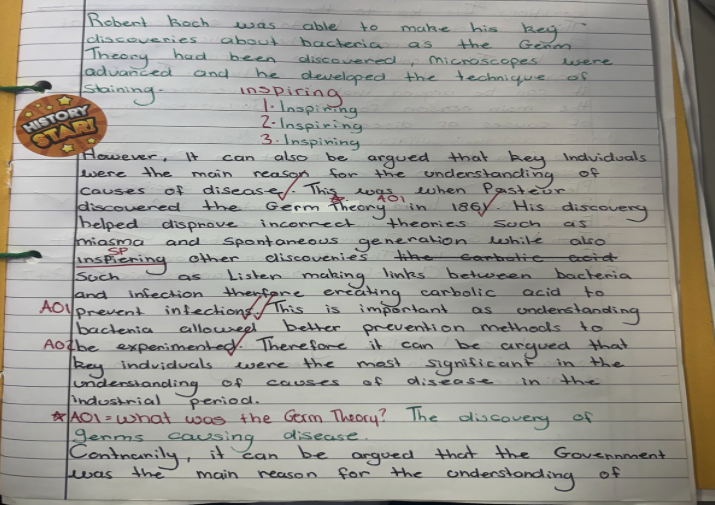 Robert Koch was able to make his key
discoveries about bacteria as the Germ
Theory had been discovered, microscopes were
advanced and he developed the technique of
staining.
inspiring
1. Inspiring
2. Inspiring
3. Inspining
HISTORY
STAR!
However, It can also be argued that key Indviduals
were the main reason for the understanding of
causes of disease. This was when Pasteur
AO1
discovered the Germ Theory in 1861. His discovery
helped disprove incorrect theories such as
miasma and spontaneous generation while also
SP
inspiering other discoveries the carbolic acid
Such as Listen making links between bacteria
and infection therfore creating carbolic acid to
AO1 prevent infections. This is important as understanding
bacteria allowed better prevention methods to
AO2 be experimented. Therefore it can be argued that
key indviduals were the most significant in the
understanding of causes of disease in the
industrial period.
* AO1 = what was the Germ Theory? The discovery of
germs causing disease.
Contrarily, it can be argued that the Government
was the main reason for the understanding of